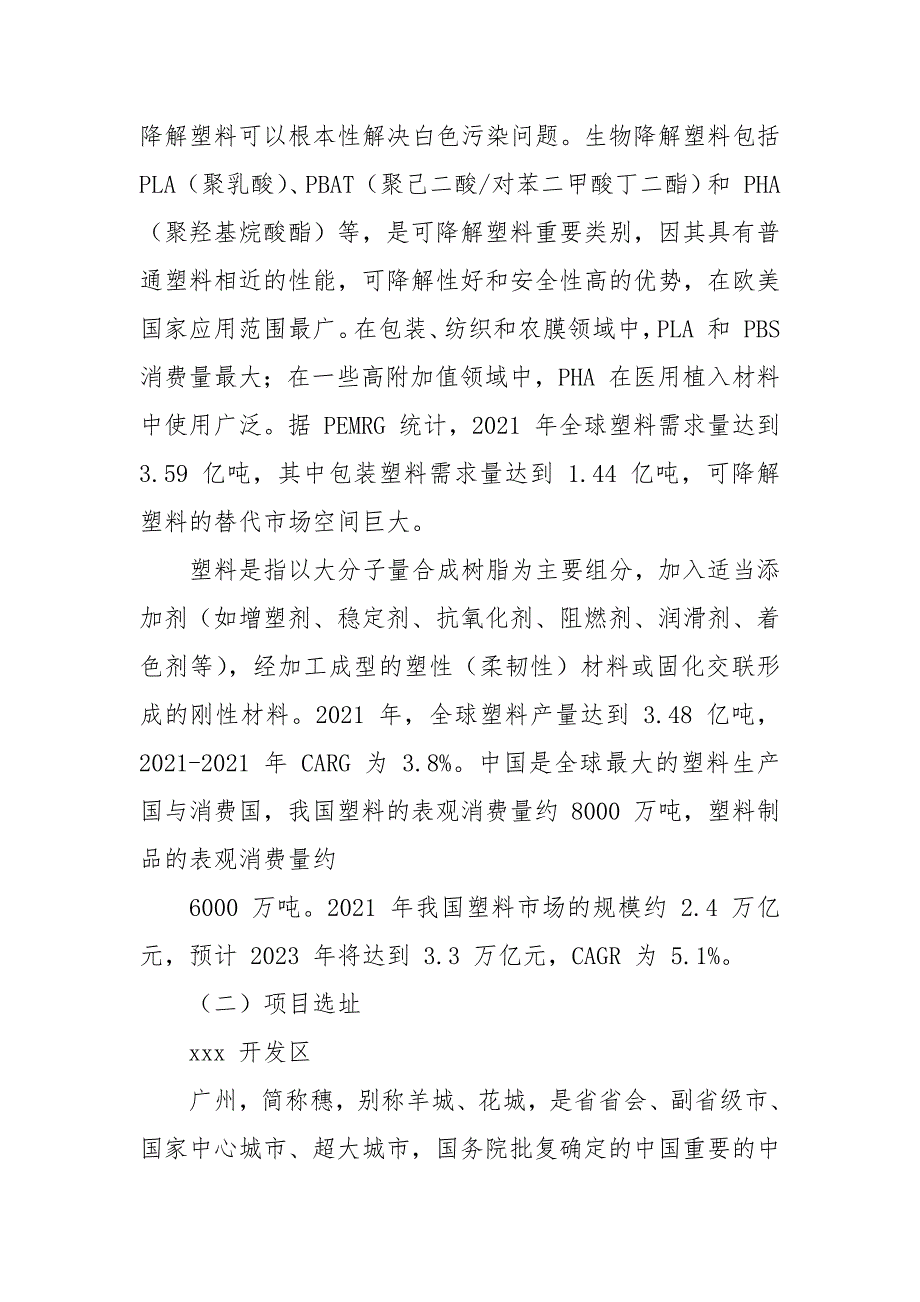 降解塑料可以根本性解决白色污染问题。生物降解塑料包括
PLA（聚乳酸）、PBAT（聚己二酸/对苯二甲酸丁二酯）和 PHA
（聚羟基烷酸酯）等，是可降解塑料重要类别，因其具有普
通塑料相近的性能，可降解性好和安全性高的优势，在欧美
国家应用范围最广。在包装、纺织和农膜领域中，PLA 和 PBS
消费量最大；在一些高附加值领域中，PHA 在医用植入材料
中使用广泛。据 PEMRG 统计，2021 年全球塑料需求量达到
3.59 亿吨，其中包装塑料需求量达到 1.44 亿吨，可降解
塑料的替代市场空间巨大。
塑料是指以大分子量合成树脂为主要组分，加入适当添
加剂（如增塑剂、稳定剂、抗氧化剂、阻燃剂、润滑剂、着
色剂等），经加工成型的塑性（柔韧性）材料或固化交联形
成的刚性材料。2021 年，全球塑料产量达到 3.48 亿吨，
2021-2021 年 CARG 为 3.8%。中国是全球最大的塑料生产
国与消费国，我国塑料的表观消费量约 8000 万吨，塑料制
品的表观消费量约
6000 万吨。2021 年我国塑料市场的规模约 2.4 万亿
元，预计 2023 年将达到 3.3 万亿元，CAGR 为 5.1%。
（二）项目选址
xxx 开发区
广州，简称穗，别称羊城、花城，是省省会、副省级市、
国家中心城市、超大城市，国务院批复确定的中国重要的中